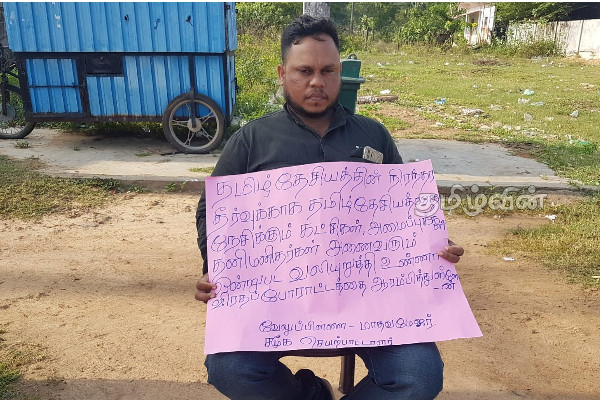 தமிழ்தேசியத்தின் நிரந்தர
தீர்வுக்காக தமிழ்தேசியத்தை
நேசிக்கும் கட்சிகள், அமைப்புகள்
தனிமனிதர்கள் அனைவரும்
ஒன்றுபட வலியுறுத்தி உண்ணா
விரதப்போராட்டத்தை ஆரம்பித்துள்ளேன்
வேலுப்பிள்ளை - மாதவமேஜர்.
சமூக செயற்பாட்டாளர்
தமிழ்வின்